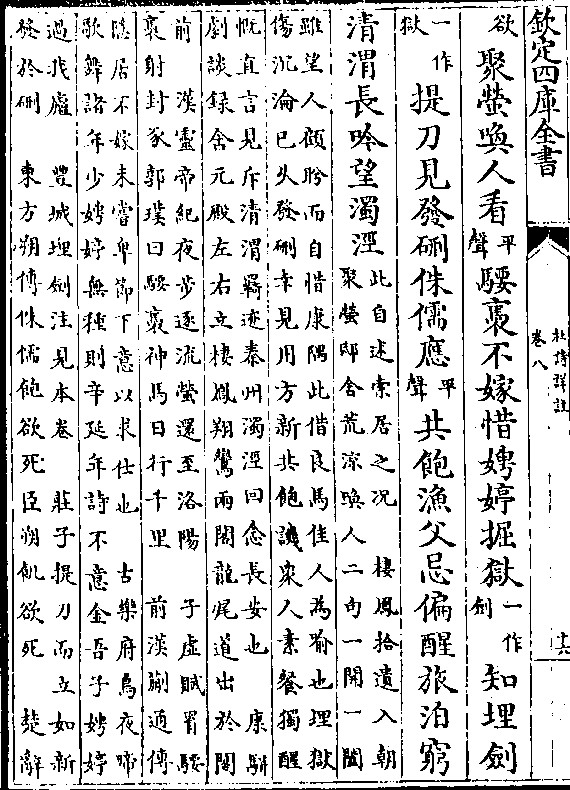 欽定四庫全書
杜詩詳註
卷八
欲聚螢喚人看平聲騕褭不嫁惜娉婷掘獄一作劍知埋劍
一作獄提刀見發硎侏儒應平聲共飽漁父忌偏醒旅泊窮
清渭長吟望濁涇
此自述索居之况 棲鳳拾遺入朝
聚螢邸舍荒涼喚人二句一開一闔
雖望人顧盼而自惜康隅此借良馬佳人為喻也埋獄
傷沉淪已久發硎幸見用方新共飽譏衆人素餐獨醒
慨直言見斥清渭羇迹秦州濁涇回念長安也 康駢
劇談録含元殿左右立棲鳳翔鸞兩闕龍尾道出於闕
前 漢靈帝紀夜步逐流螢還至洛陽 子虛賦罥騕
褭射封豕郭璞曰騕褭神馬日行千里 前漢蒯通傳
隱居不嫁未嘗卑節下意以求仕也 古樂府烏夜啼
歌舞諸年少娉婷無種則辛延年詩不意金吾子娉婷
過我廬 豐城埋劍注見本卷 莊子提刀而立如新
發於硎 東方朔傳侏儒飽欲死臣朔飢欲死 楚辭